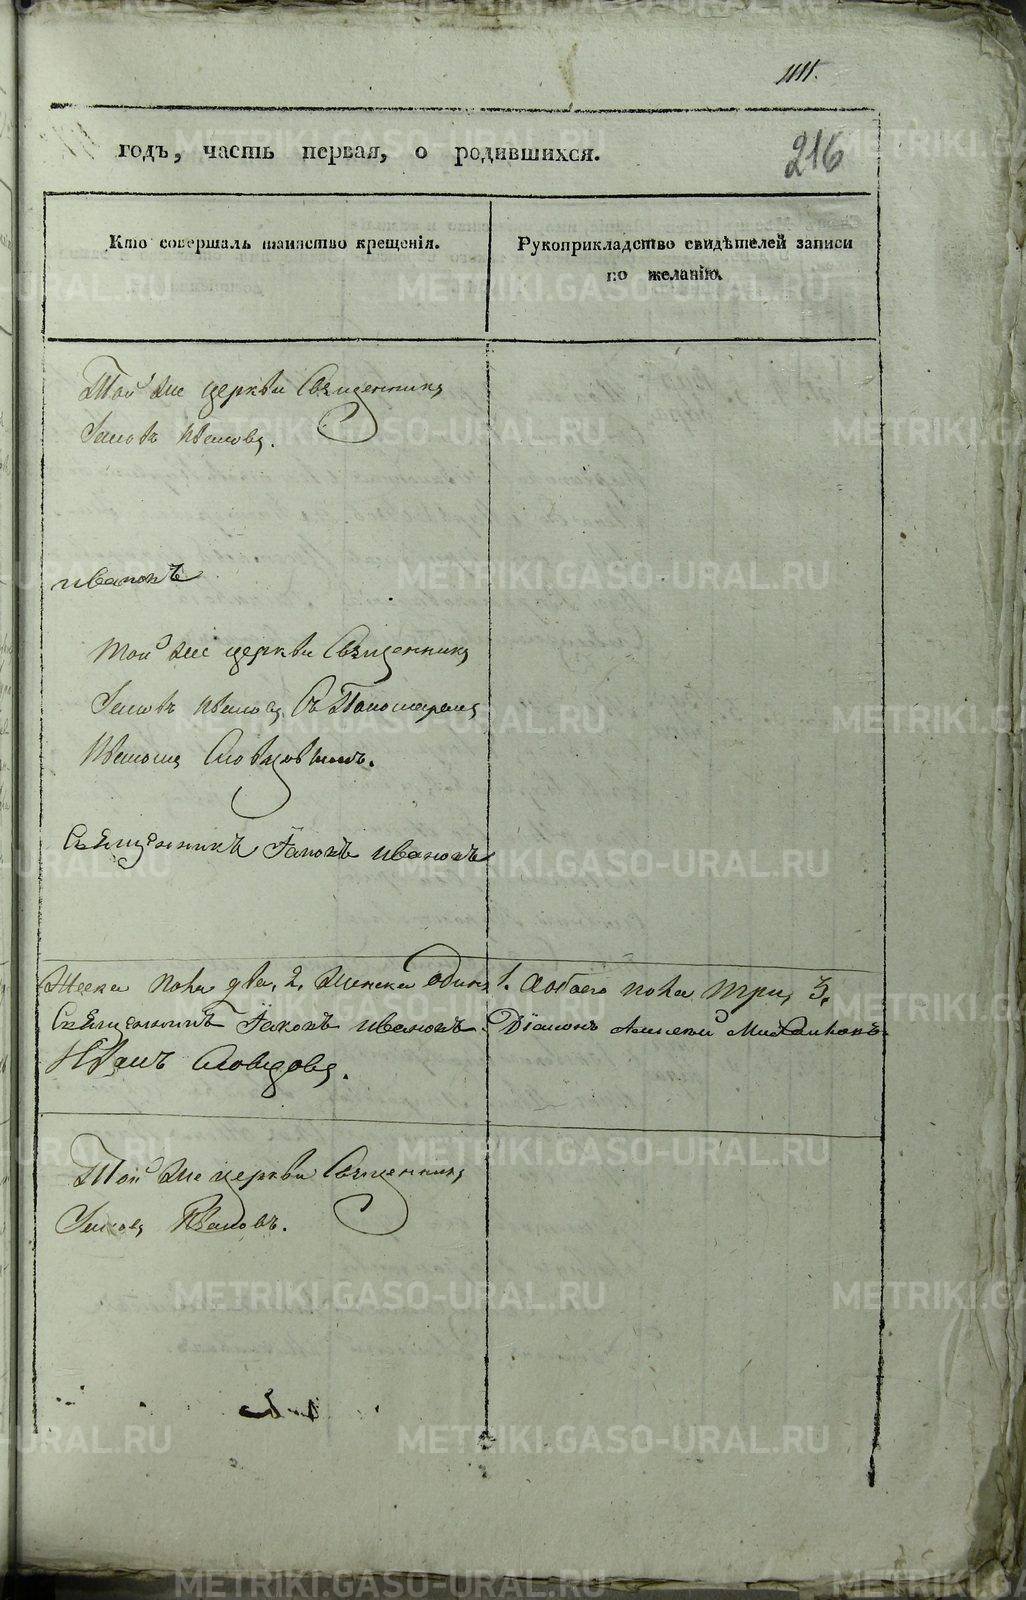 1111.
216
годъ, часть первая, о родившихся.
Кто совершалъ таинство крещенія.
Рукоприкладство свидѣтелей записи
по желанію.
Той же церкви Священникъ
Іаковъ Ивановъ.
ивановъ
той же церкви Священникъ
Іаковъ Ивановъ, съ Пономаремъ
Иваномъ Словцовымъ.
Священникъ Іаковъ ивановъ
Мужеска пола два, 2, женска одинъ 1. Aобоего пола три, 3,
Священникъ Іаковъ ивановъ. Діаконъ Алексѣй Михайловъ
Иванъ Словцовъ.
Той же церкви Священникъ
Іаковъ Ивановъ.
METRIKI.GASO-URAL.RU